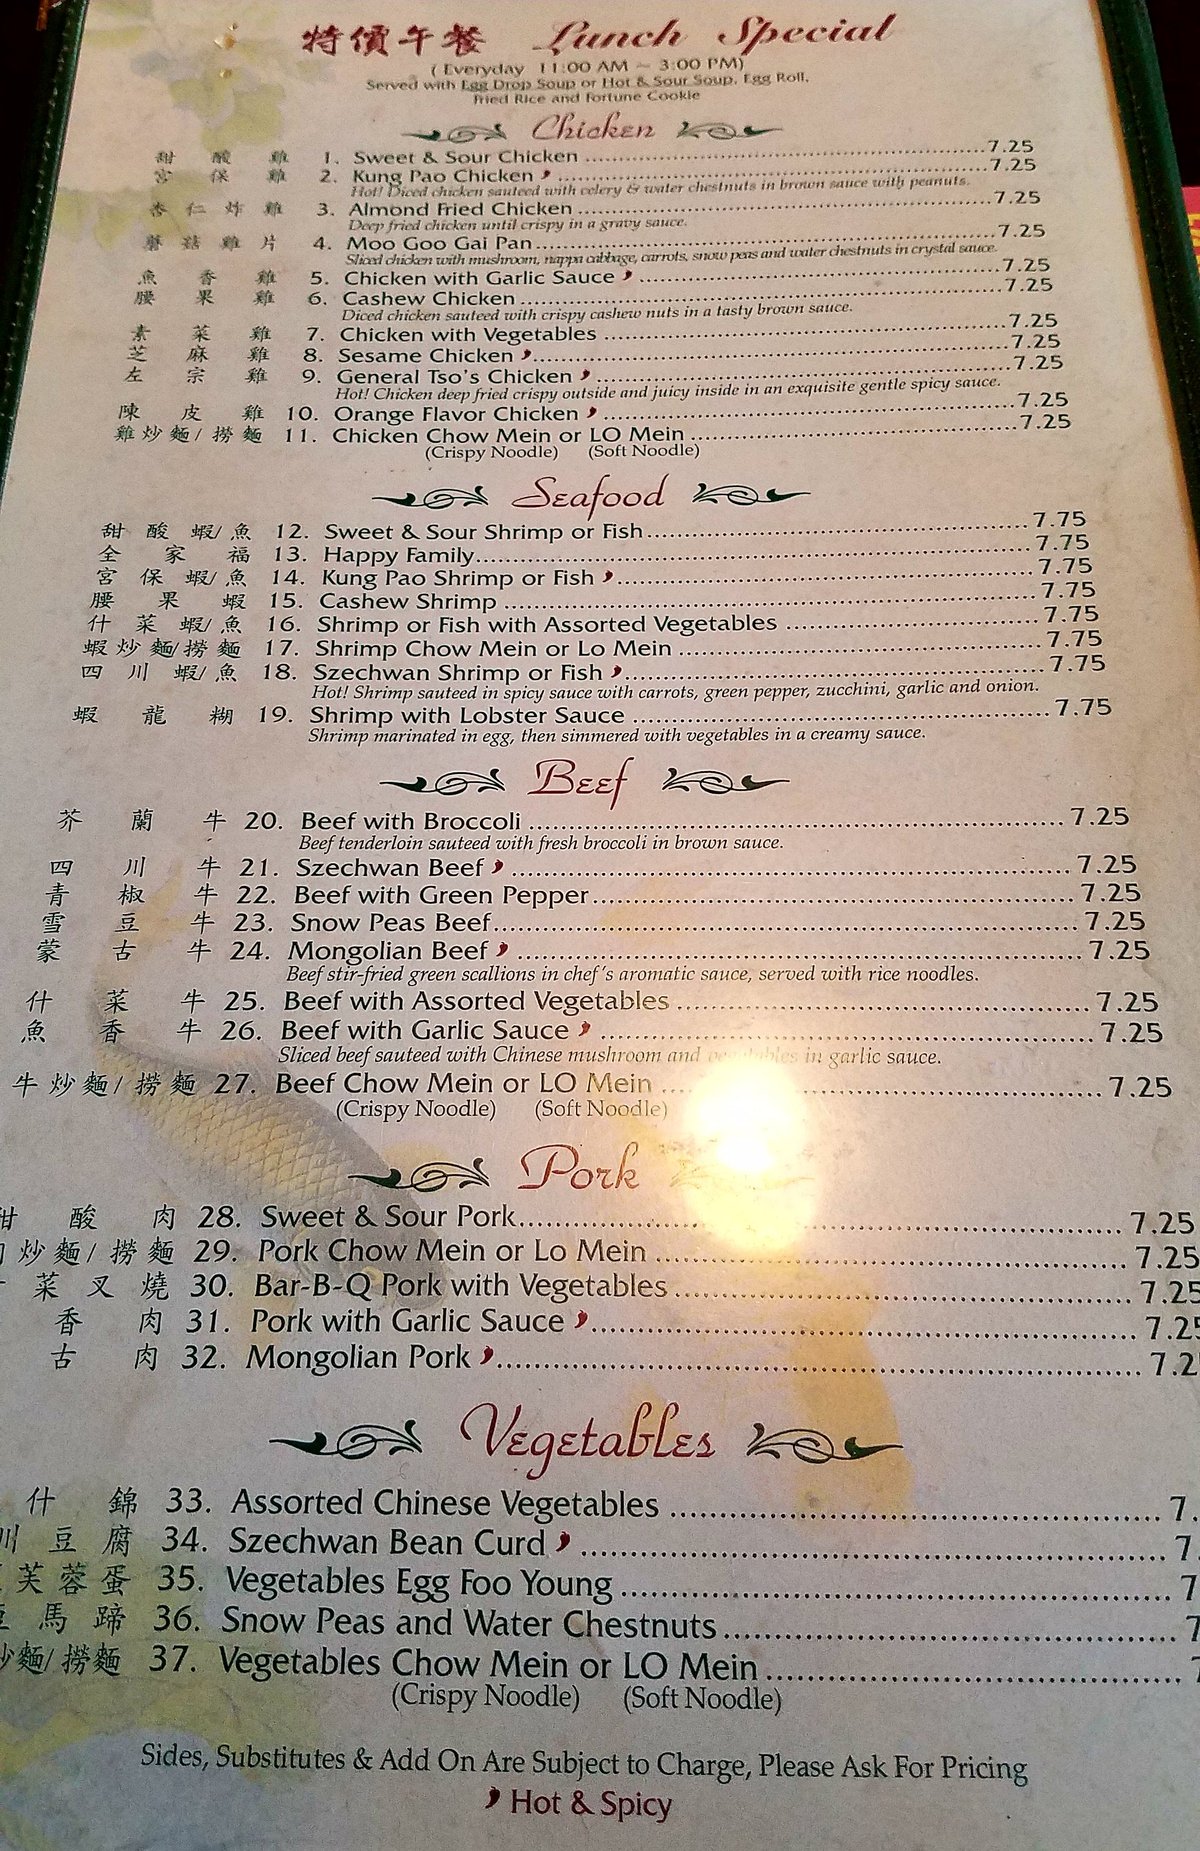 特價午餐 Lunch Special
( Everyday 11:00 AM ~ 3:00 PM)
Served with Egg Drop Soup or Hot & Sour Soup, Egg Roll,
Fried Rice and Fortune Cookie
Chicken
甜酸雞 1. Sweet & Sour Chicken 7.25
宮保雞 2. Kung Pao Chicken 7.25
Hot! Diced chicken sauteed with celery & water chestnuts in brown sauce with peanuts.
杏仁炸雞 3. Almond Fried Chicken 7.25
Deep fried chicken until crispy in a gravy sauce.
蘑菇雞片 4. Moo Goo Gai Pan 7.25
Sliced chicken with mushroom, nappa cabbage, carrots, snow peas and water chestnuts in crystal sauce.
魚香雞 5. Chicken with Garlic Sauce 7.25
腰果雞 6. Cashew Chicken 7.25
Diced chicken sauteed with crispy cashew nuts in a tasty brown sauce.
素菜雞 7. Chicken with Vegetables 7.25
芝麻雞 8. Sesame Chicken 7.25
左宗雞 9. General Tso's Chicken 7.25
Hot! Chicken deep fried crispy outside and juicy inside in an exquisite gentle spicy sauce.
陳皮雞 10. Orange Flavor Chicken 7.25
雞炒麵/撈麵 11. Chicken Chow Mein or LO Mein 7.25
(Crispy Noodle) (Soft Noodle)
Seafood
甜酸蝦/魚 12. Sweet & Sour Shrimp or Fish 7.75
全家福 13. Happy Family 7.75
宮保蝦/魚 14. Kung Pao Shrimp or Fish 7.75
腰果蝦 15. Cashew Shrimp 7.75
什菜蝦/魚 16. Shrimp or Fish with Assorted Vegetables 7.75
蝦炒麵/撈麵 17. Shrimp Chow Mein or Lo Mein 7.75
四川蝦/魚 18. Szechwan Shrimp or Fish 7.75
Hot! Shrimp sauteed in spicy sauce with carrots, green pepper, zucchini, garlic and onion.
蝦龍糊 19. Shrimp with Lobster Sauce 7.75
Shrimp marinated in egg, then simmered with vegetables in a creamy sauce.
Beef
芥蘭牛 20. Beef with Broccoli 7.25
Beef tenderloin sauteed with fresh broccoli in brown sauce.
四川牛 21. Szechwan Beef 7.25
青椒牛 22. Beef with Green Pepper 7.25
雪豆牛 23. Snow Peas Beef 7.25
蒙古牛 24. Mongolian Beef 7.25
Beef stir-fried green scallions in chef's aromatic sauce, served with rice noodles.
什菜牛 25. Beef with Assorted Vegetables 7.25
魚香牛 26. Beef with Garlic Sauce 7.25
Sliced beef sauteed with Chinese mushroom and vegetables in garlic sauce.
牛炒麵/撈麵 27. Beef Chow Mein or LO Mein 7.25
(Crispy Noodle) (Soft Noodle)
Pork
甜酸肉 28. Sweet & Sour Pork 7.25
炒麵/撈麵 29. Pork Chow Mein or Lo Mein 7.25
菜叉燒 30. Bar-B-Q Pork with Vegetables 7.25
香肉 31. Pork with Garlic Sauce 7.25
古肉 32. Mongolian Pork 7.2
Vegetables
什錦 33. Assorted Chinese Vegetables 7.
川豆腐 34. Szechwan Bean Curd 7.
芙蓉蛋 35. Vegetables Egg Foo Young 7
馬蹄 36. Snow Peas and Water Chestnuts 7
炒麵/撈麵 37. Vegetables Chow Mein or LO Mein 7
(Crispy Noodle) (Soft Noodle)
Sides, Substitutes & Add On Are Subject to Charge, Please Ask For Pricing
Hot & Spicy